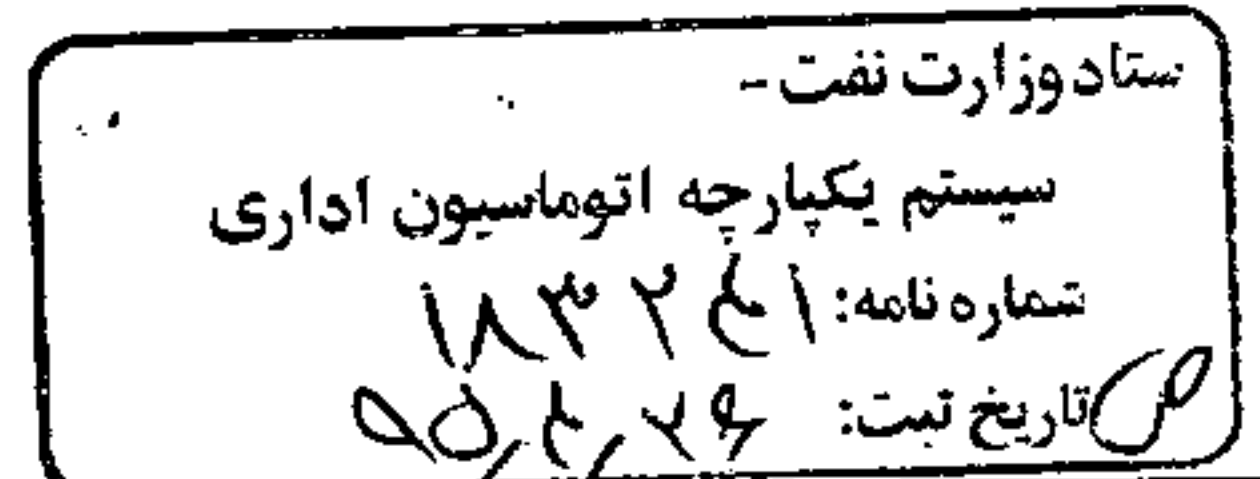 ستاد وزارت نفت -
سیستم یکپارچه اتوماسیون اداری
شماره نامه: ۱۸۳۲۴۱
تاریخ ثبت: ۹۵/۴/۲۶